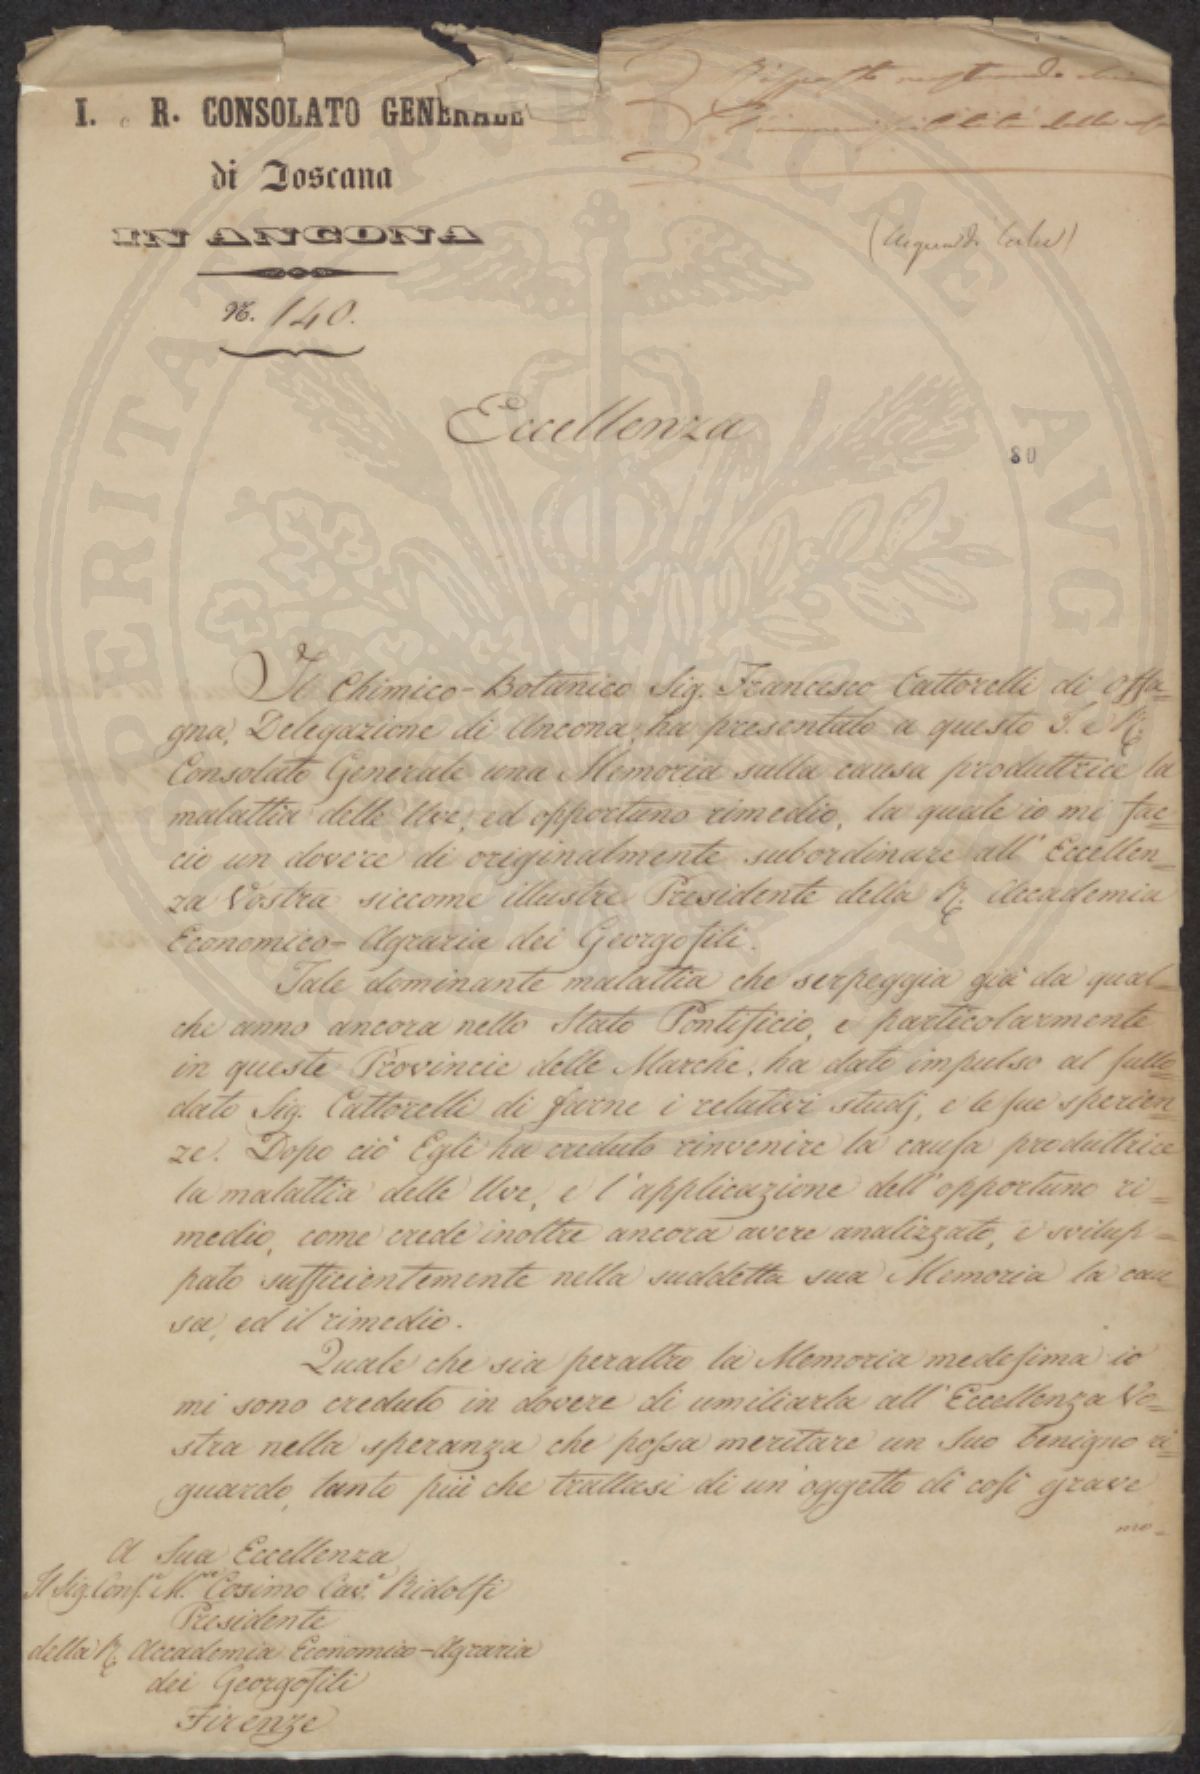 I. e R. CONSOLATO GENERALE
di Toscana
IN ANCONA
N. 140.
Eccellenza
80
Il Chimico-Botanico Sig. Francesco Cattorelli di Offa-
gna, Delegazione di Ancona, ha presentato a questo I. e R.
Consolato Generale una Memoria sulla causa produttrice la
malattia delle Uve, ed opportuno rimedio, la quale io mi fac-
cio un dovere di originalmente subordinare all' Eccellen-
za Vostra siccome illustre Presidente della R. Accademia
Economico-Agraria dei Georgofili.
Tale dominante malattia che serpeggia già da qual-
che anno ancora nello Stato Pontificio, e particolarmente
in queste Provincie delle Marche, ha dato impulso al sullo-
dato Sig. Cattorelli di farne i relativi studj, e le sue sperien-
ze. Dopo ciò Egli ha creduto rinvenire la causa produttrice
la malattia delle Uve, e l'applicazione dell' opportuno ri-
medio, come crede inoltre ancora avere analizzato, e svilup-
pato sufficientemente nella suddetta sua Memoria la cau
sa, ed il rimedio.
Quale che sia peraltro la Memoria medesima io
mi sono creduto in dovere di umiliarla all' Eccellenza Vo-
stra nella speranza che possa meritare un Suo benigno ri-
guardo, tanto più che trattasi di un' oggetto di così grave
mo-
A Sua Eccellenza
Il Sig. Cons.e M.se Cosimo Cav.e Ridolfi
Presidente
della R. Accademia Economico-Agraria
dei Georgofili
Firenze
PROSPERITATI PVBLICAE AVGENDAE